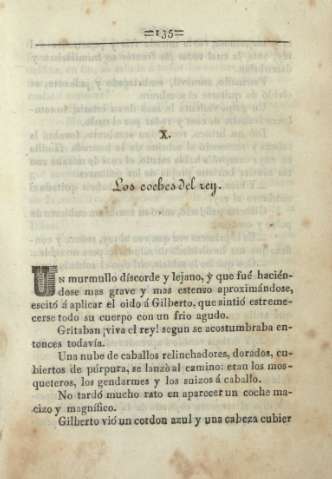 =135=
X.
Los coches del rey.
UN murmullo discorde y lejano, y que fué hacién-
dose mas grave y mas estenso aproximándose,
escitó á aplicar el oido á Gilberto, que sintió estreme-
cerse todo su cuerpo con un frio agudo.
Gritaban ¡viva el rey! segun se acostumbraba en-
tonces todavía.
Una nube de caballos relinchadores, dorados, cu-
biertos de púrpura, se lanzó al camino: eran los mos-
queteros, los gendarmes y los suizos á caballo.
No tardó mucho rato en aparecer un coche ma-
cizo y magnífico.
Gilberto vió un cordon azul y una cabeza cubier